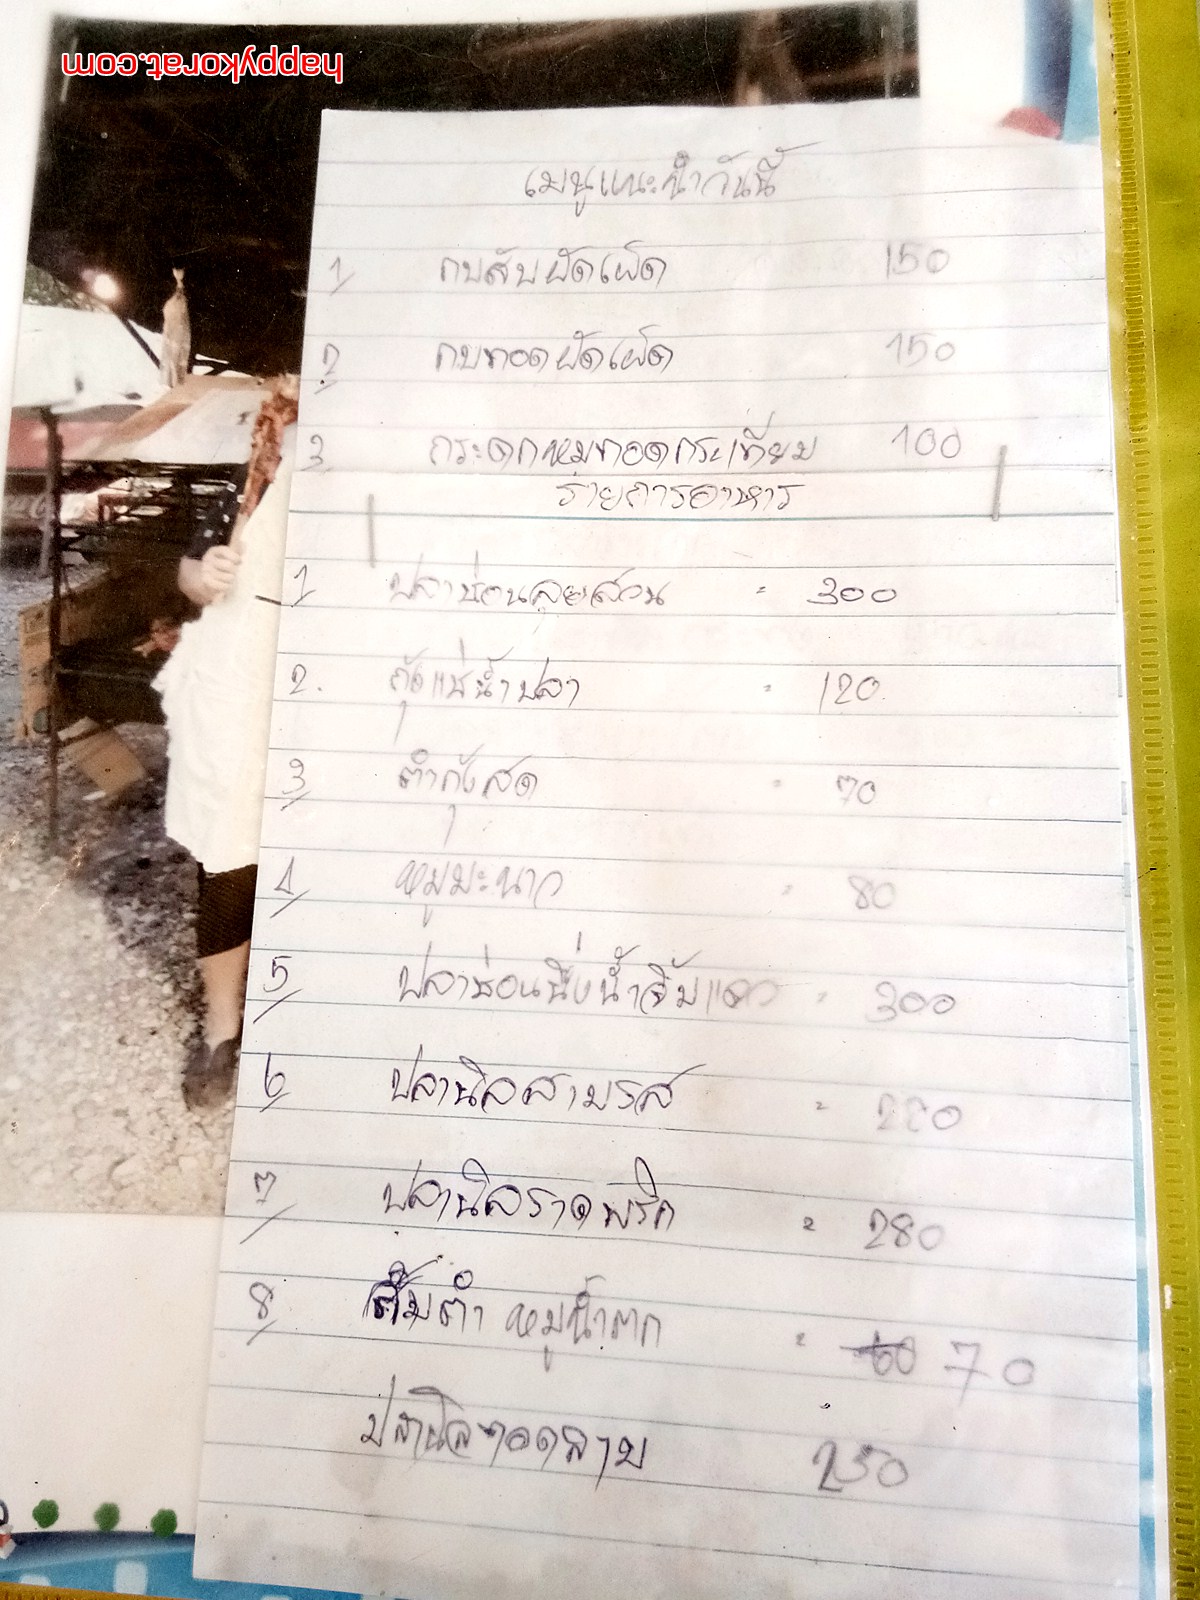 happykorat.com
เมนูแนะนำวันนี้
1 กบสับผัดเผ็ด 150
2 กบทอดผัดเผ็ด 150
3 กระดูกหมูทอดกระเทียม 100
รายการอาหาร
1 ปลาช่อนลุยสวน = 300
2. กุ้งแช่น้ำปลา = 120
3 ตำกุ้งสด = 70
4 หมูมะนาว = 80
5 ปลาช่อนนึ่งน้ำจิ้มแดง = 300
6 ปลานิลสามรส = 220
7 ปลานิลราดพริก = 280
8 ส้มตำ หมูน้ำตก = 60 70
ปลานิลทอดลาบ 250